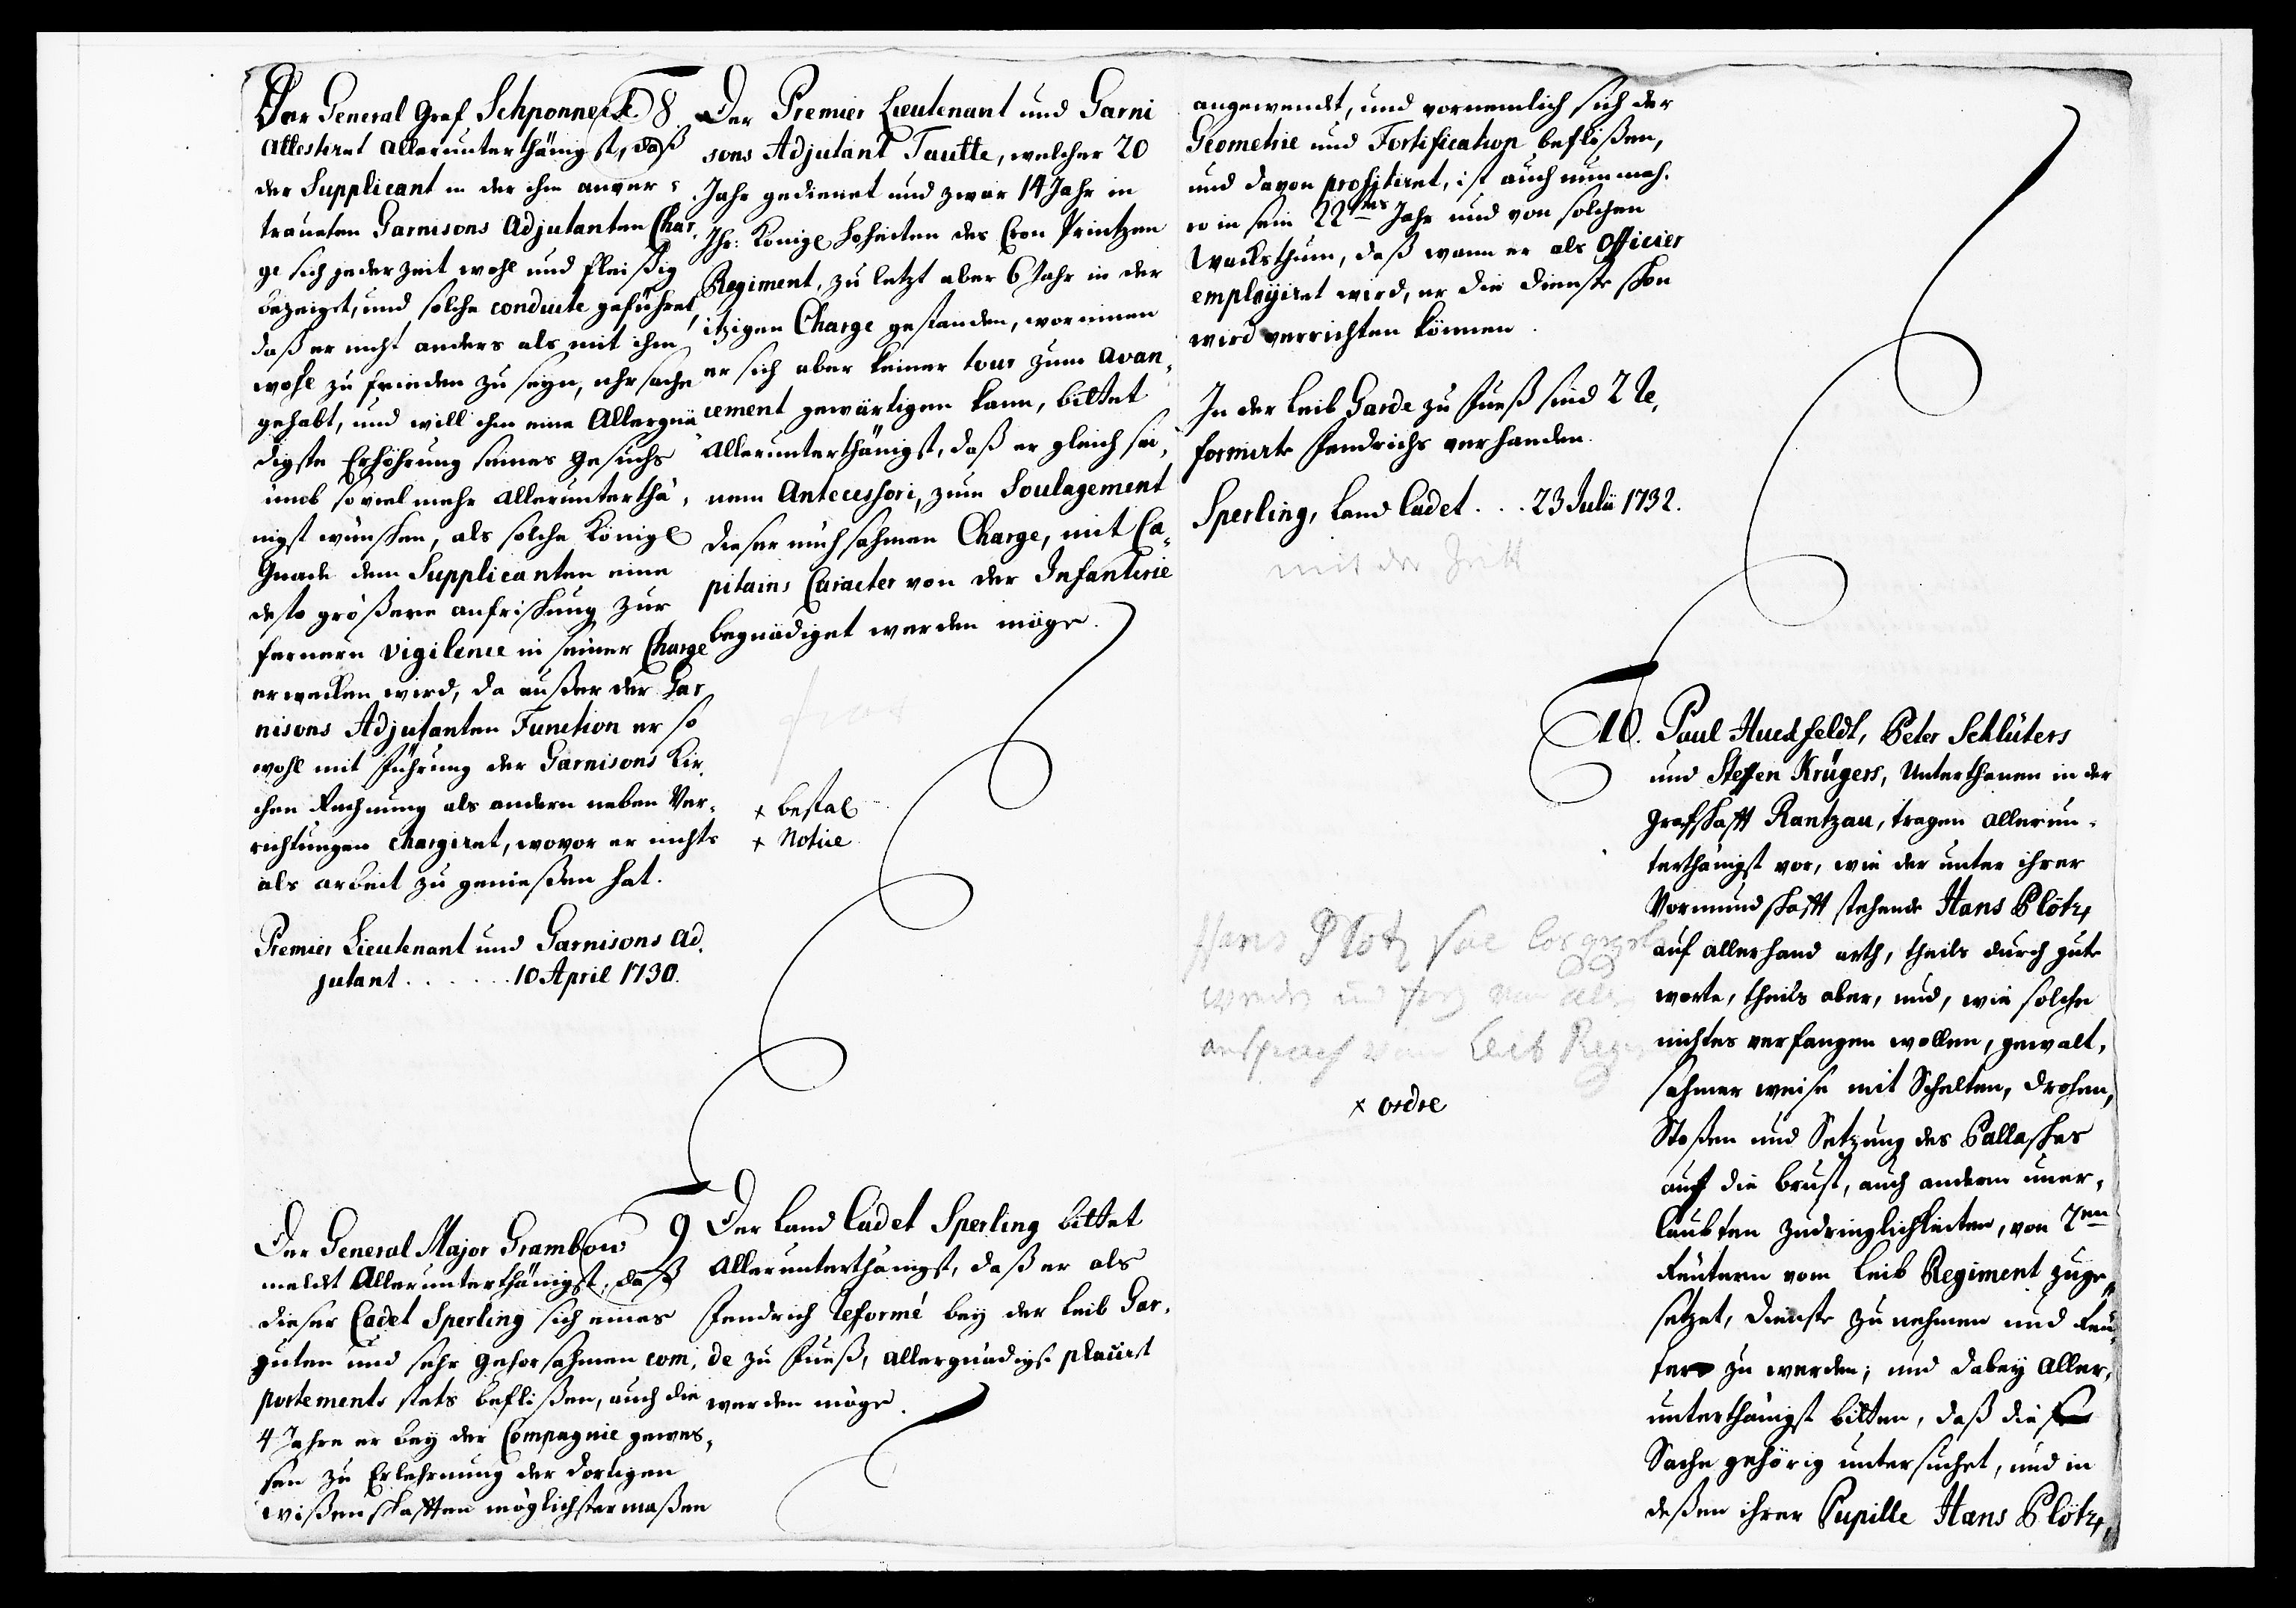 Der General Graf Schponneck
attestiret allerunterthänigst, daß
der Supplicant in der ihm anver-
traueten Garnisons Adjutanten Char,
ge sich jederzeit wohl und fleißig
bezeiget, und solche conduite geführet,
daß er nicht anders als mit ihm
wohl zu frieden zu seyn, uhrsache
gehabt, und will ihm eine Allergnä
digste Erhöhrung seines Gesuchs
umb so viel mehr allerunterthä,
nigst wünschen, als solche Königl
Gnade dem Supplicanten eine
desto größere anfrischung zur
fernern vigilence in seiner Charge
erwecken wird, da außer der Gar
nisons Adjutanten Function er so
wohl mit führung der Garnisons Kir,
chen Rechnung als andern neben Ver-
richtungen chargiret, wovor er nichts
als arbeit zu genießen hat.
Premier Lieutenant und Garnisons Ad,
jutant . . . . . . 10 April 1730.
8. Der Premier Lieutenant und Garni
sons Adjutant Tautte, welcher 20
Jahr gedienet und zwar 14 Jahr in
Ihr: Königl Hoheiten des Cron Printzen
Regiment, zu letzt aber 6 Jahr in der
itzigen Charge gestanden, worinnen
er sich aber keiner tour zum avan,
cement gewärtigen kann, bittet
allerunterthänigst, daß er gleich sei,
nem Antecessori, zum Soulagement
dieser mühsahmen Charge, mit Ca,
pitains Caracter von der Infanterie
begnädiget werden möge.
+ bestal
+ Notice
Der General Major Grambow
meldet Allerunterthänigst, daß
dieser Cadet Sperling sich eines
guten und sehr gehorsahmen com,
portements stets beflißen, auch die
4 Jahre er bey der Compagnie gewes,
sen zu Erlehrnung der dortigen
wißenschafften möglichstermaßen
9 Der Land Cadet Sperling bittet
Allerunterthänigst, daß er als
Fendrich Reformé bey der Leib Gar,
de zu Fueß, allergnädigst placirt
werden möge.
angewendt, und vornemlich sich der
Geometrie und Fortification beflißen,
und davon profitiret, ist auch nunmeh,
ro in sein 22tes Jahr und von solchen
Wachsthum, daß wann er als Officier
employiret wird, er die Dienste schon
wird verrichten können.
In der Leib Garde zu Fueß sind 2 Re,
formirte Fendrichs verhanden.
Sperling, Land Cadet . . . 23 Julii 1732.
mit der Zeitt
10. Paul Huusfeldt, Peter Schlüters
und Steffen Krügers, Unterthanen in der
Grafschafft Rantzau, tragen allerun-
terthänigst vor, wie der unter ihrer
Vormundschafft stehende Hans Plötz,
auf allerhand arth, theils durch gute
worte, theils aber, und, wie solche
nichtes verfangen wollen, gewalt,
sahmer weise mit Schelten, drohen,
Stoßen und Setzung des Pallasches
auf die brust, auch andern uner,
laubten Zudringlichkeiten, von 2en
Reütern vom Leib Regiment zuge,
setzet, Dienste zu nehmen und Reü,
ter zu werden; und dabey aller,
unterthänigst bitten, daß die
Sache gehörig untersuchet, und in
deßen ihrer Pupille Hans Plötz,
Hans Plotz
und
Leib Reg
+ ordre